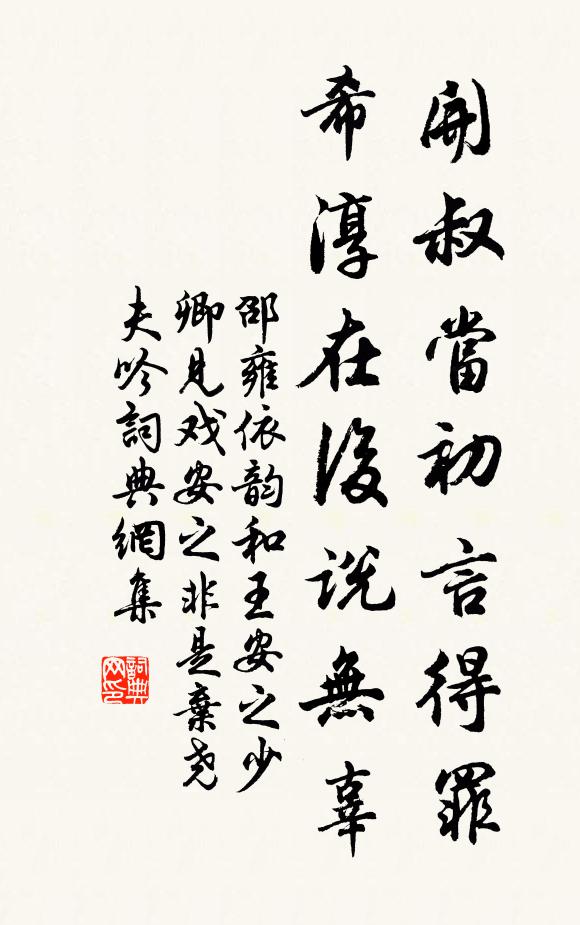 開叔當初言得罪
希淳在後説無辜
邵雍依韵和王安之少
卿見戏安之非是棄尧
夫吟詞典網集
詞典网印